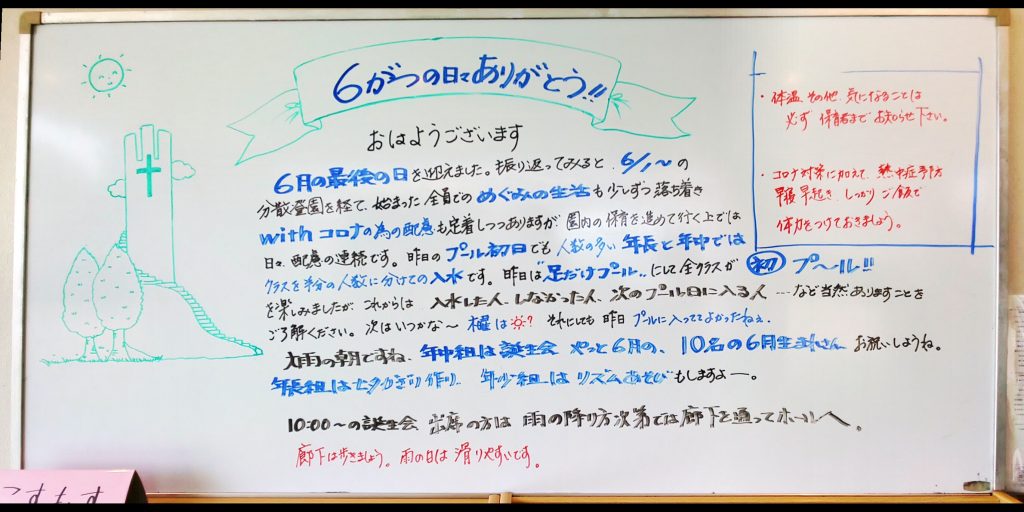 6がつの日々ありがとう!!
おはようございます
6月の最後の日を迎えました。振り返ってみると、6/1〜の
分散登園を経て、始まった全員でのめぐみの生活も少しずつ落ち着き
withコロナの為の配慮も定着しつつありますが、園内の保育を進めて行く上では
日々、配慮の連続です。昨日のプール初日でも人数の多い年長と年中では
クラスを半分の人数に分けての入水です。昨日は"足だけプール"にして全クラスが㊗初 プ〜ル!!
を楽しみましたが、これからは 入水した人、しなかった人、次のプール日に入る人…など当然ありますことを
ご了解ください。次はいつかな〜 木曜は☼? それにしても昨日プールに入っててよかったねぇ。
大雨の朝ですね、年中組は誕生会 やっと6月の、10名の6月生まれさん お祝いしようね。
年長組は七夕かざり作り、年少組はリズムあそびもしますよー。
10:00〜の誕生会 出席の方は 雨の降り方次第では廊下を通ってホールへ。
廊下は歩きましょう。雨の日は滑りやすいです。
・体温、その他、気になることは
必ず 保育者まで お知らせ下さい。
・コロナ対策に加えて、熱中症予防
早寝 早起き しっかりご飯で
体力をつけておきましょう。
こすもす